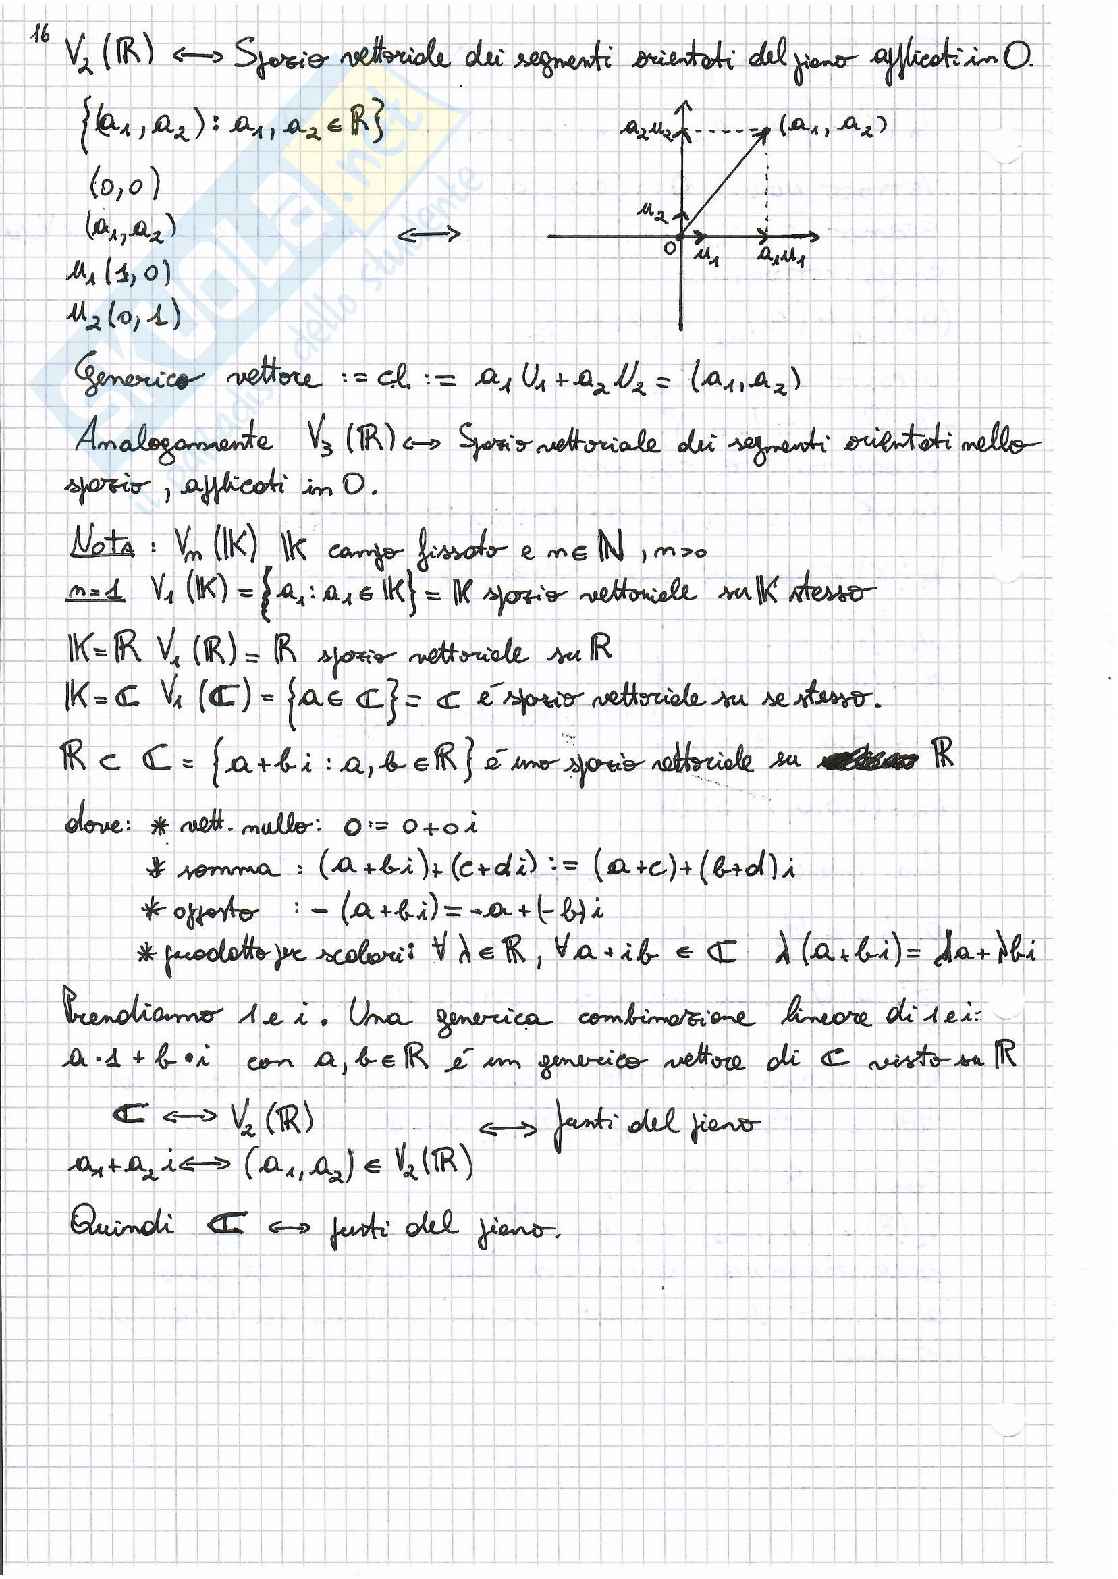 16
V₂(ℝ) ⟷ Spazio vettoriale dei segmenti orientati del piano applicati in O.
{(a₁, a₂) : a₁, a₂ ∈ ℝ}
a₂u₂ (a₁, a₂)
(0,0)
(a₁, a₂)
u₂
⟷
O u₁ a₁u₁
u₁(1,0)
u₂(0,1)
Generico vettore := cl. := a₁U₁+a₂U₂ = (a₁,a₂)
Analogamente V₃(ℝ) ⟷ Spazio vettoriale dei segmenti orientati nello
spazio, applicati in O.
Nota : Vₙ(𝕂) 𝕂 campo fissato e n∈ℕ, n>0
n=1 V₁(𝕂) = {a₁ : a₁ ∈ 𝕂} = 𝕂 spazio vettoriale su 𝕂 stesso
𝕂=ℝ V₁(ℝ) = ℝ spazio vettoriale su ℝ
𝕂=ℂ V₁(ℂ) = {a ∈ ℂ} = ℂ é spazio vettoriale su se stesso.
ℝ ⊂ ℂ = {a+bi : a, b ∈ ℝ} é uno spazio vettoriale su ℝ
dove: * vett. nullo: 0 := 0+0i
* somma : (a+bi)+(c+di) := (a+c)+(b+d)i
* opposto : -(a+bi) = -a+(-b)i
* prodotto per scalari: ∀ λ ∈ ℝ, ∀ a+ib ∈ ℂ λ(a+bi) = λa+λbi
Prendiamo 1 e i. Una generica combinazione lineare di 1 e i:
a·1 + b·i con a, b ∈ ℝ é un generico vettore di ℂ visto su ℝ
ℂ ⟷ V₂(ℝ) ⟷ punti del piano
a₁+a₂i ⟷ (a₁, a₂) ∈ V₂(ℝ)
Quindi ℂ ⟷ punti del piano.
SKUOLA.net
dello studente